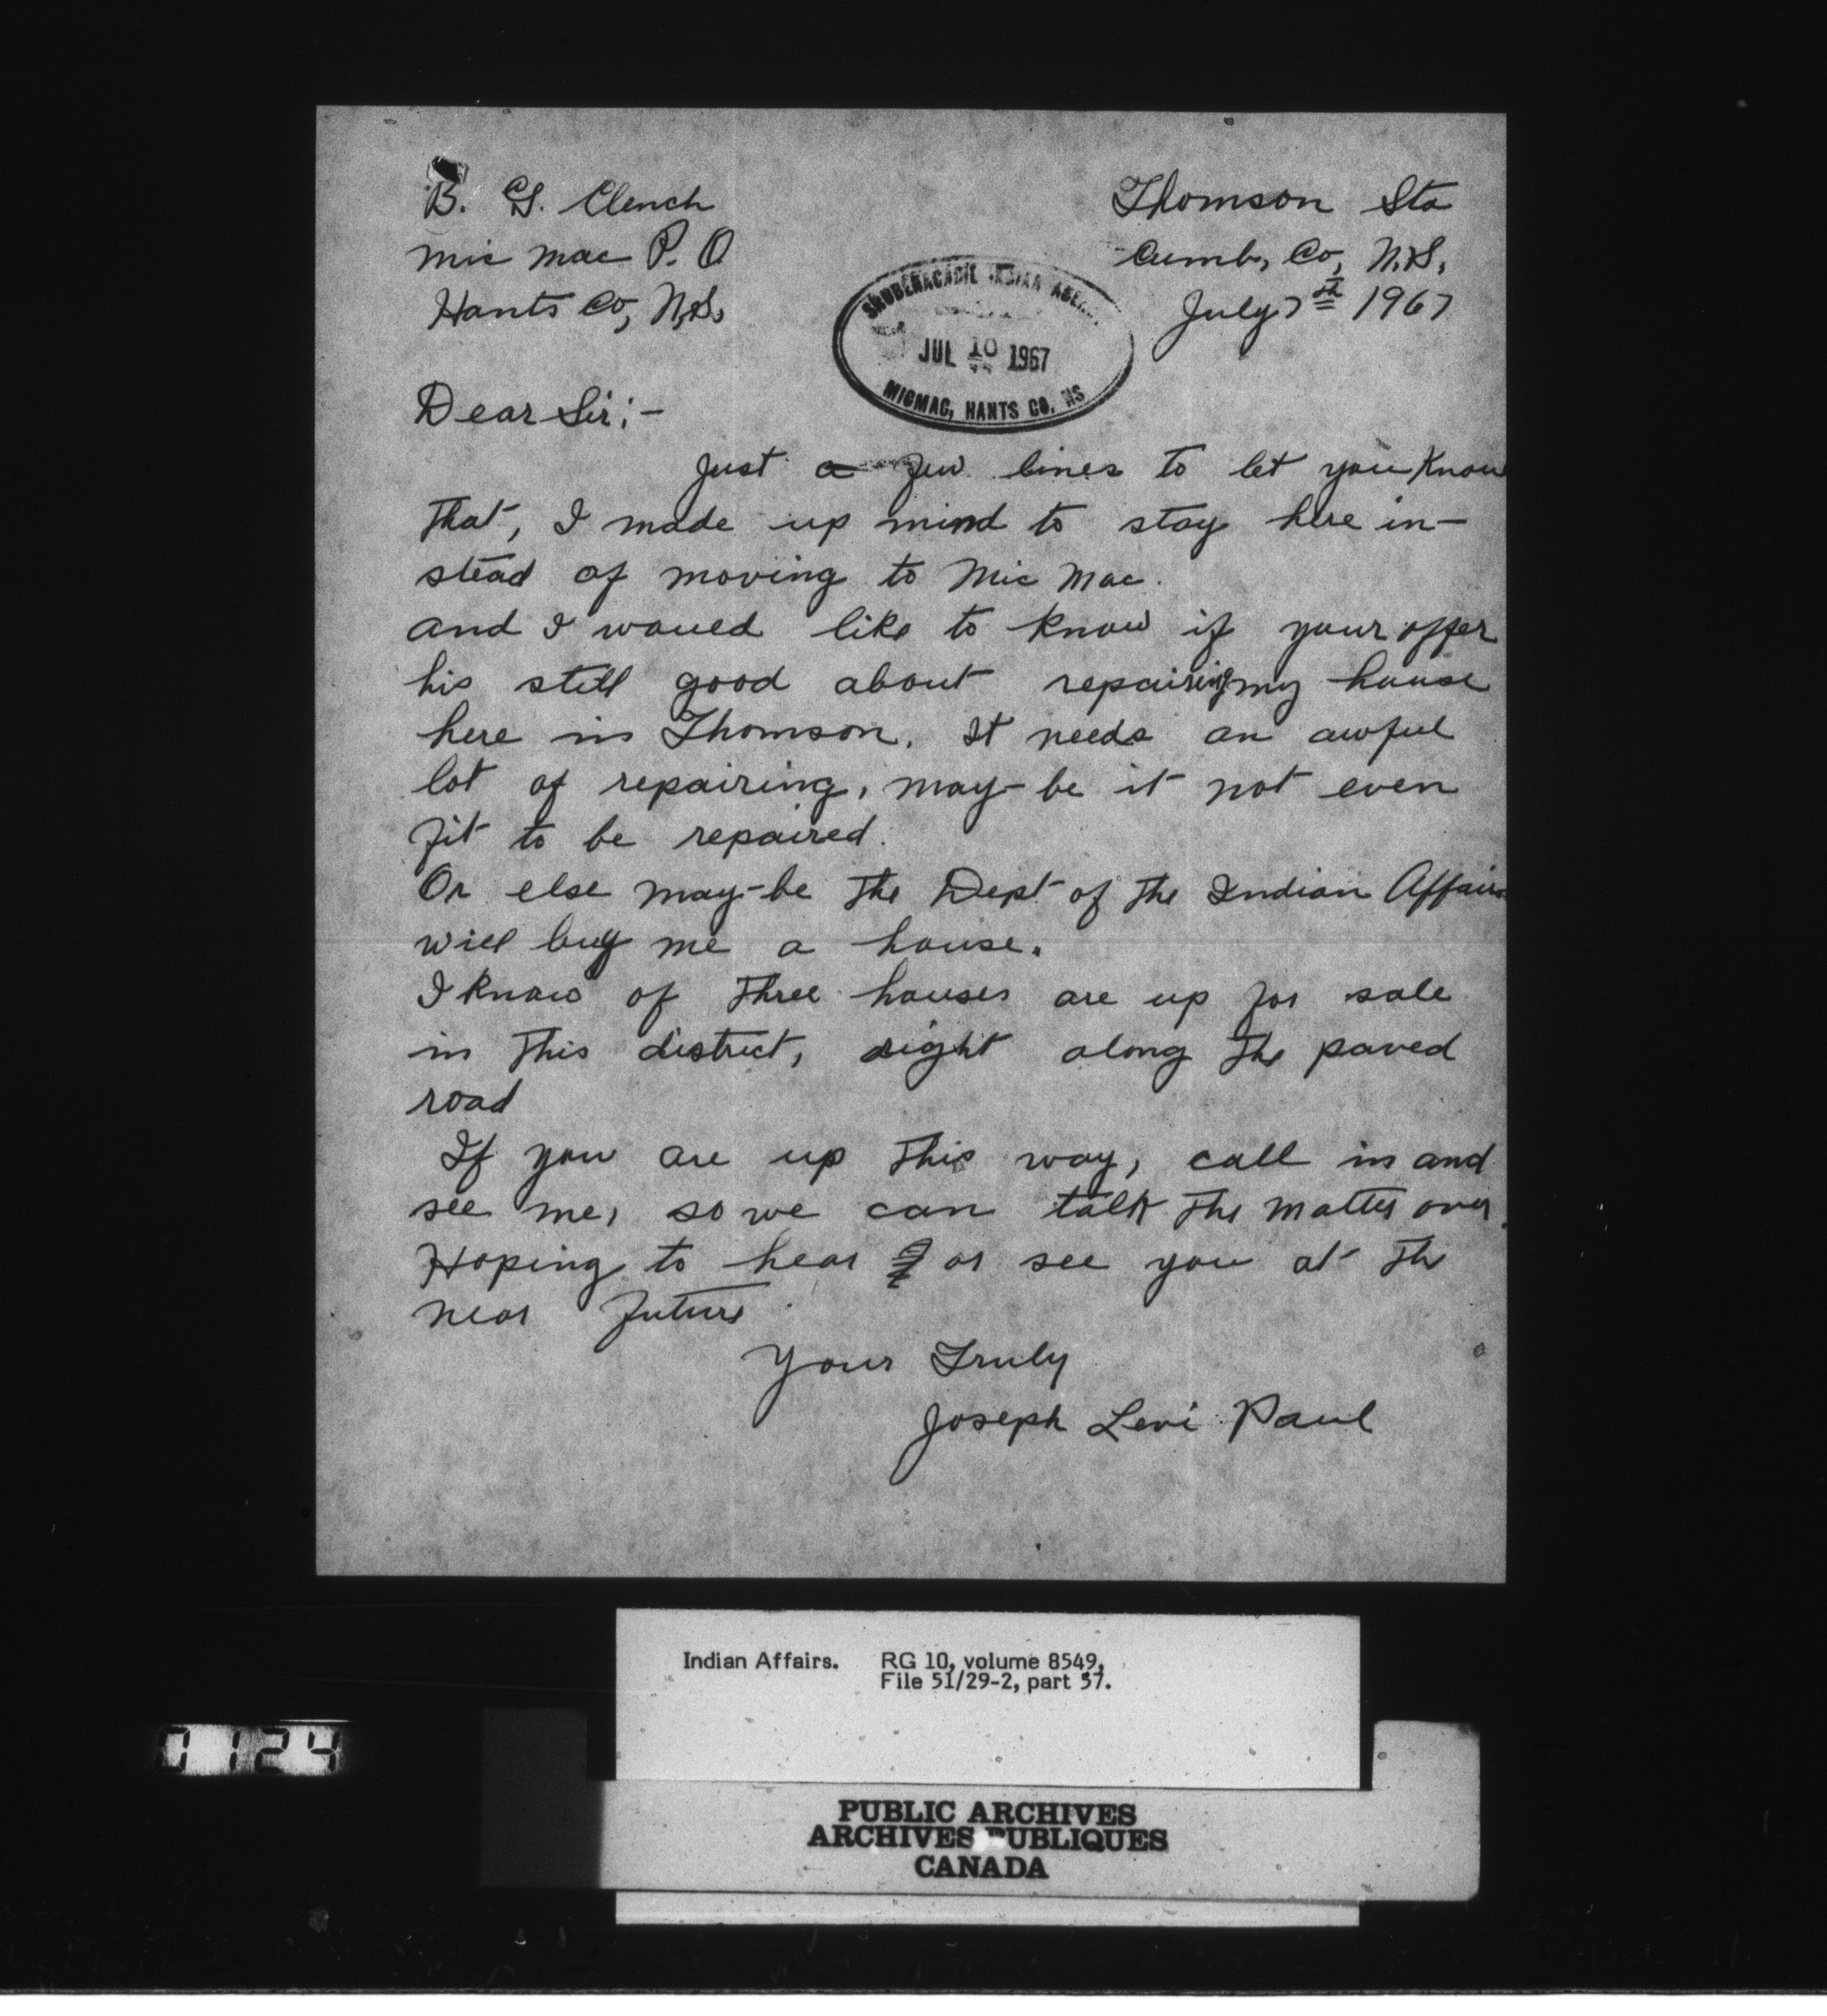 B. G. Clench
Mic Mac P. O
Hants Co, N.S.
Thomson Sta
Cumb, Co, N.S.
July 7th 1967
SHUBENACADIE INDIAN AGENCY
JUL 10 1967
MICMAC, HANTS CO. NS
Dear Sir;-
Just a few lines to let you know
that, I made up mind to stay here in-
stead of moving to Mic Mac.
and I would like to know if your offer
his still good about repairing my house
here in Thomson. It needs an awful
lot of repairing, may-be it not even
fit to be repaired.
Or else may-be the Dept of the Indian Affairs
will buy me a house.
I know of three houses are up for sale
in this district, right along the paved
road
If you are up this way, call in and
see me, so we can talk the matter over.
Hoping to hear or see you at the
near future.
Your Truly
Joseph Levi Paul
Indian Affairs. RG 10, volume 8549,
File 51/29-2, part 57.
1124
PUBLIC ARCHIVES
ARCHIVES PUBLIQUES
CANADA